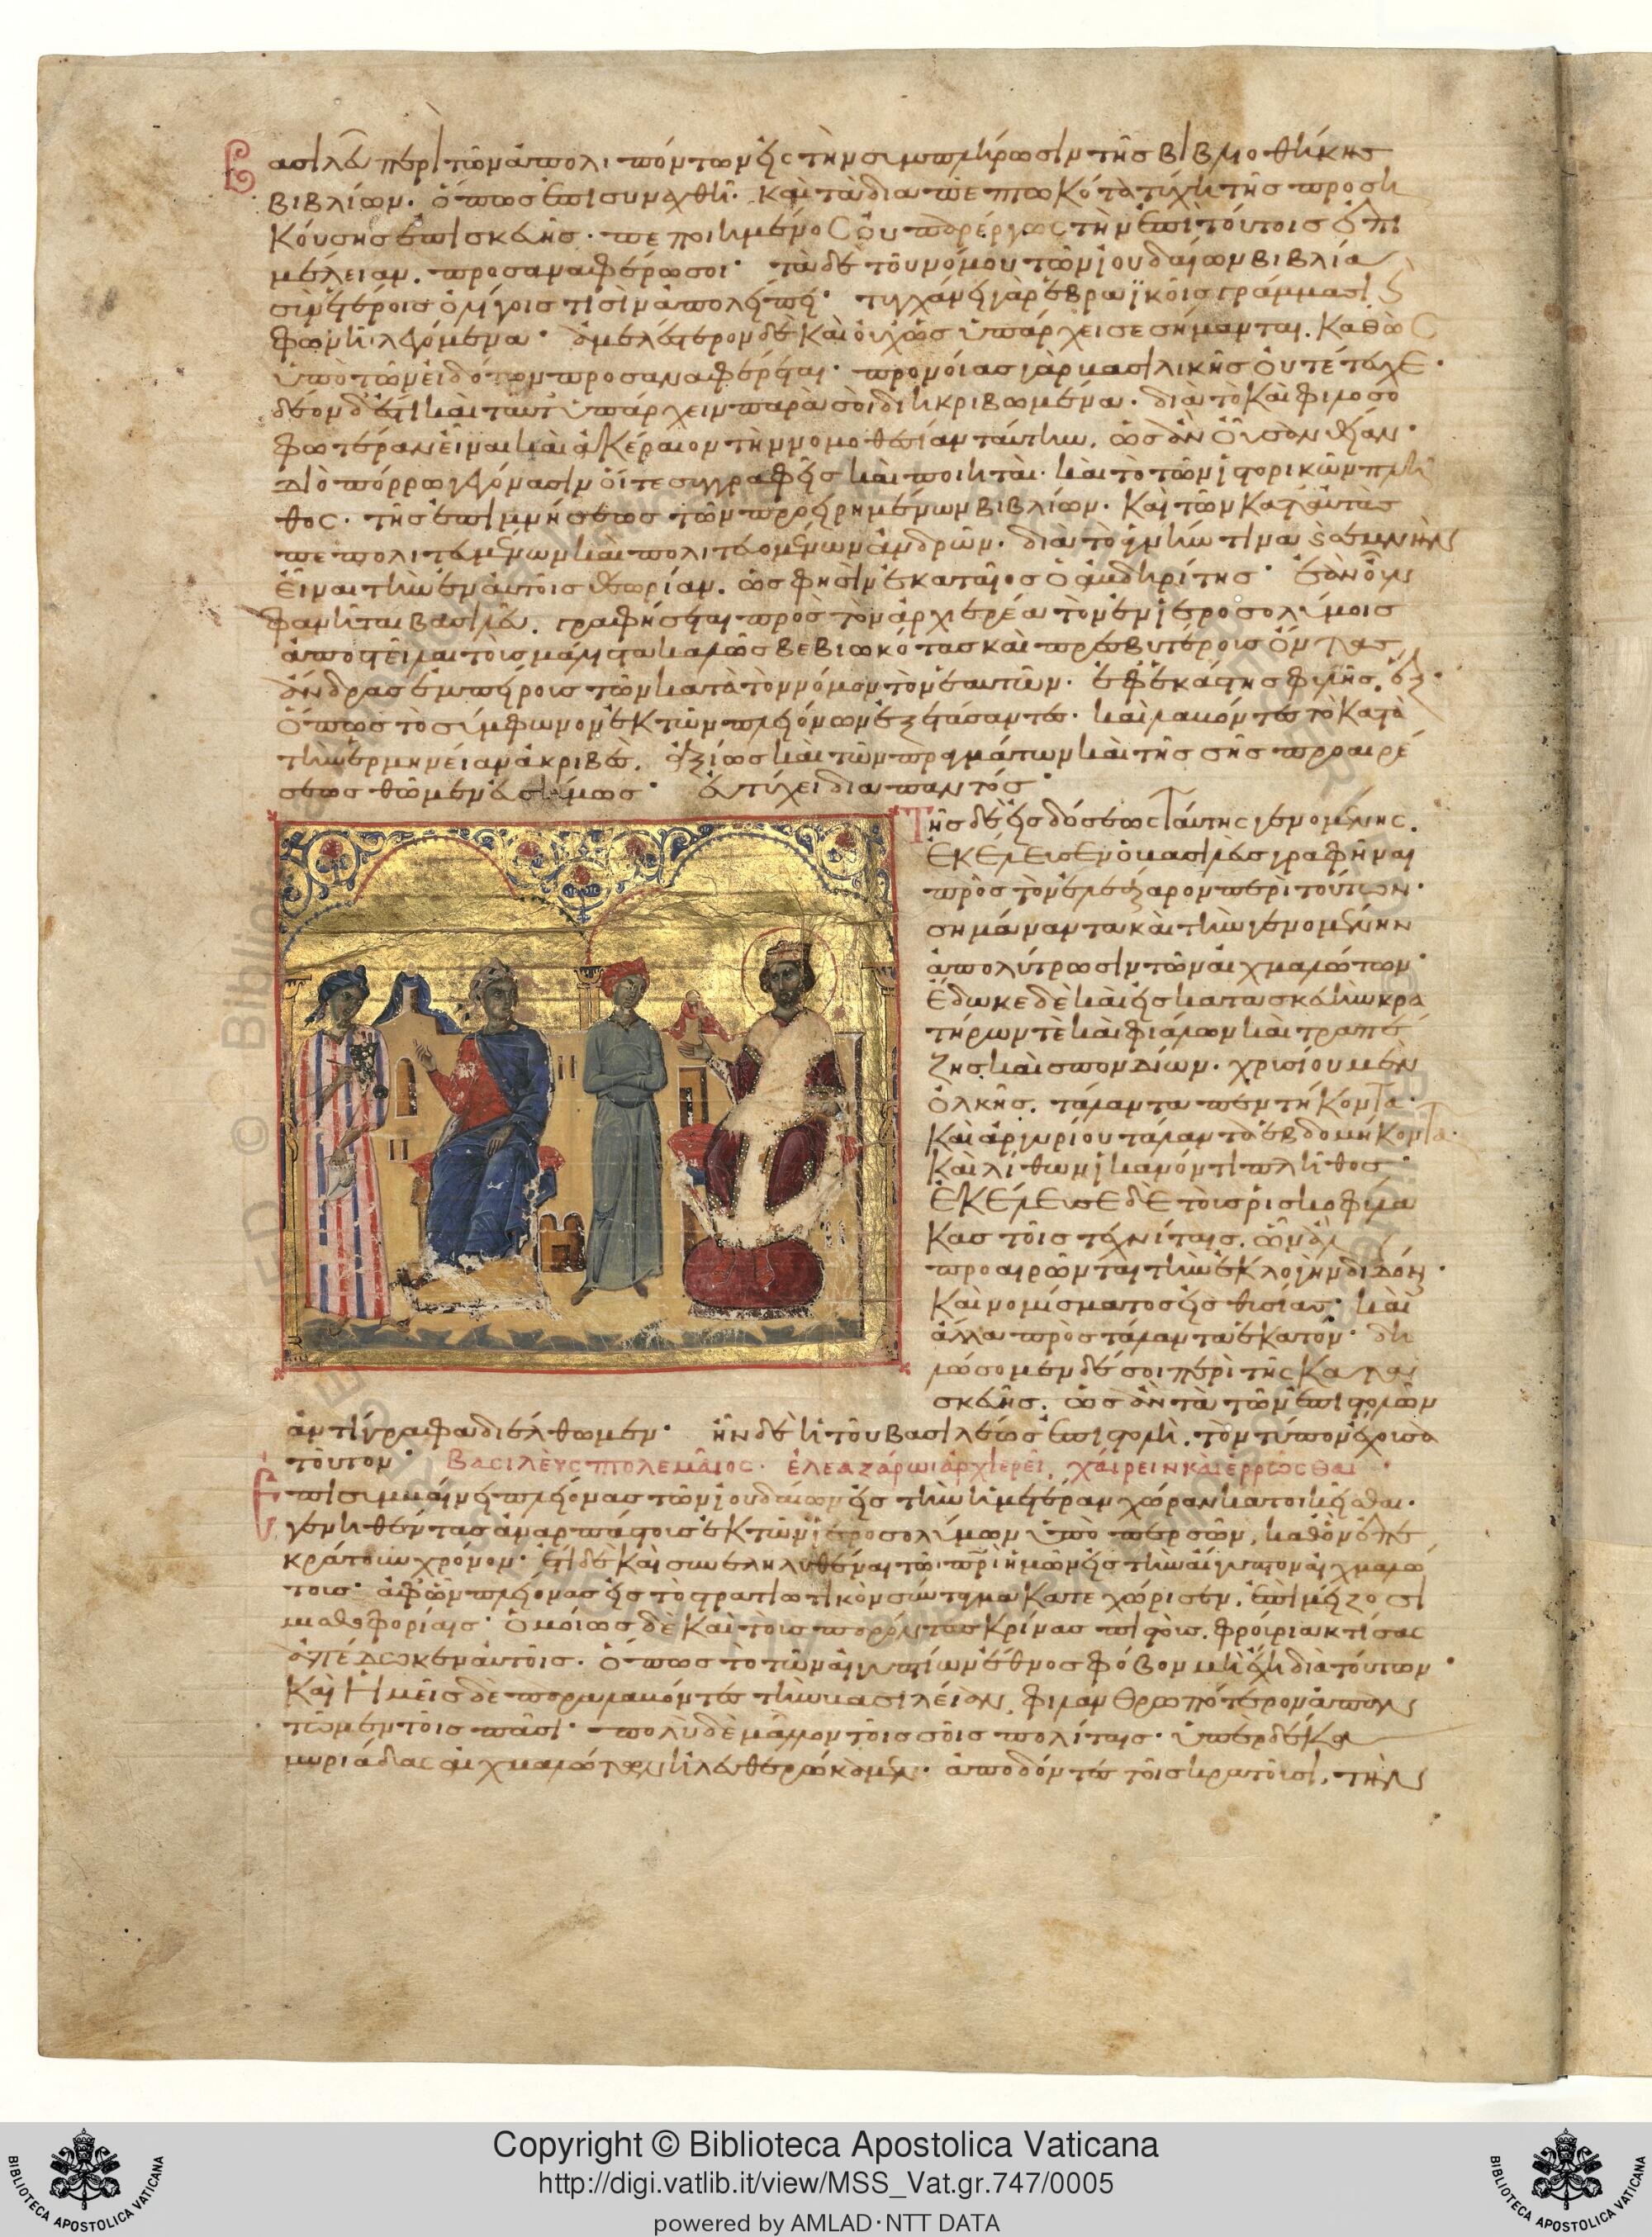 Βασιλεῦ περὶ τῶν ἀπολιπόντων εἰς τὴν συμπλήρωσιν τῆς βιβλιοθήκης
βιβλίων· ὅπως ἐπισυναχθῆ· καὶ τὰ διαπεπτωκότα τύχη τῆς προση
κούσης ἐπισκευῆς· πεποιημένος οὐ παρέργως τὴν ἐπὶ τούτοις ἐπι
μέλειαν. προσαναφέρω σοι· τὰ δὲ τοῦ νόμου τῶν ἰουδαίων βιβλία
σὺν ἑτέροις ὀλίγοις τισὶν ἀπολείπει· τυγχάνει γὰρ ἑβραϊκοῖς γράμμασι καὶ
φωνῆ λεγόμενα· ἀμελέστερον δὲ καὶ οὐχ ὡς ὑπάρχει σεσήμανται. καθὼς
ὑπὸ τῶν εἰδότων προσαναφέρεται· προνοίας γὰρ βασιλικῆς οὐ τέτευχε·
δέον δέ ἐστι καὶ ταῦτ' ὑπάρχειν παρὰ σοὶ διηκριβωμένα· διὰ τὸ καὶ φιλοσο
φωτέραν εἶναι καὶ ἀκέραιον τὴν νομοθεσίαν ταύτην. ὡς ἂν οὖσαν θείαν·
Διὸ πόρρω γεγόνασιν οἵ τε συγγραφεῖς καὶ ποιηταὶ· καὶ τὸ τῶν ἱστορικῶν πλῆ
θος· τῆς ἐπιμνήσεως τῶν προειρημένων βιβλίων· καὶ τῶν κατ' αὐτὰς
πεπολιτευμένων καὶ πολιτευομένων ἀνδρῶν· διὰ τὸ ἁγνήν τινα καὶ σεμνὴν
εἶναι τὴν ἐν αὐτοῖς θεωρίαν. ὥς φησὶν ἑκαταῖος ὁ ἀβδηρίτης· ἐὰν οὖν
φαίνηται βασιλεῦ. γραφήσεται πρὸς τὸν ἀρχιερέα τὸν ἐν ἱεροσολύμοις
ἀποστεῖλαι τοὺς μάλιστα καλῶς βεβιωκότας καὶ πρεσβυτέρους ὄντας
ἄνδρας ἐμπείρους τῶν κατὰ τὸν νόμον τὸν ἑαυτῶν· ἀφ' ἑκάστης φυλῆς. ἕξ·
ὅπως τὸ σύμφωνον ἐκ τῶν πλειόνων ἐξετάσαντες· καὶ λαβόντες τὸ κατὰ
τὴν ἑρμηνείαν ἀκριβές. ἀξίως καὶ τῶν πραγμάτων καὶ τῆς σῆς προαιρέ
σεως θῶμεν εὐσήμως· εὐτύχει διαπαντός·
Τῆς δὲ εἰσδόσεως ταύτης γενομένης.
ἐκέλευσεν ὁ βασιλεὺς γραφῆναι
πρὸς τὸν ἐλεάζαρον περὶ τούτων·
σημάναντα καὶ τὴν γενομένην
ἀπολύτρωσιν τῶν αἰχμαλώτων·
ἔδωκε δὲ καὶ εἰς κατασκευὴν κρα
τήρων τὲ καὶ φιαλῶν καὶ τραπέ
ζης καὶ σπονδείων. χρυσίου μὲν
ὁλκῆς. τάλαντα πεντήκοντα·
καὶ ἀργυρίου τάλαντα ἑβδομήκοντα·
καὶ λίθων ἱκανόν τι πλῆθος·
ἐκέλευσε δὲ τοὺς ῥισκοφύλα
κας τοῖς τεχνίταις. ὧν ἂν
προαιρῶνται τὴν ἐκλογὴν διδόναι·
καὶ νομίσματος εἰς θυσίας· καὶ
ἄλλα πρὸς τάλαντα ἑκατόν· δη
λώσομεν δέ σοι περὶ τῆς κατα
σκευῆς. ὡς ἂν τὰ τῶν ἐπιστολῶν
ἀντίγραφα διέλθωμεν· ἦν δὲ ἡ τοῦ βασιλέως ἐπιστολὴ. τὸν τύπον ἔχουσα
τοῦτον· βασιλεὺς πτολεμαῖος· ἐλεαζάρωι ἀρχιερεῖ, χαίρειν καὶ ἐρρῶσθαι·
Ἐπεὶ συμβαίνει πλείονας τῶν ἰουδαίων εἰς τὴν ἡμετέραν χώραν κατοικεῖσθαι.
γενηθέντας ἀναρπάστους ἐκ τῶν ἱεροσολύμων ὑπὸ περσῶν, καθ' ὃν ἐπε
κράτουν χρόνον· ἔτι δὲ καὶ συνεληλυθέναι τῶ πατρὶ ἡμῶν εἰς τὴν αἴγυπτον αἰχμαλώ
τους· ἀφ' ὧν πλείονας εἰς τὸ στρατιωτικὸν σύνταγμα κατεχώρισεν, ἐπὶ μείζοσι
μισθοφορίαις· ὁμοίως δὲ καὶ τοὺς προόντας κρίνας πιστούς. φρούρια κτίσας
ἀπέδωκεν αὐτοῖς. ὅπως τὸ τῶν αἰγυπτίων ἔθνος φόβον μὴ ἔχη διὰ τούτων·
καὶ ἡμεῖς δὲ παραλαβόντες τὴν βασιλείαν, φιλανθρωπότερον ἀπαν
τῶμεν τοῖς πᾶσι· πολὺ δὲ μᾶλλον τοῖς σοῖς πολίταις· ὑπὲρ δέκα
μυριάδας αἰχμαλώτων ἠλευθερώκαμεν· ἀποδόντες τοῖς κρατοῦσι, τὴν
Copyright © Biblioteca Apostolica Vaticana
http://digi.vatlib.it/view/MSS_Vat.gr.747/0005
powered by AMLAD·NTT DATA
BIBLIOTECA APOSTOLICA VATICANA
BIBLIOTECA APOSTOLICA VATICANA